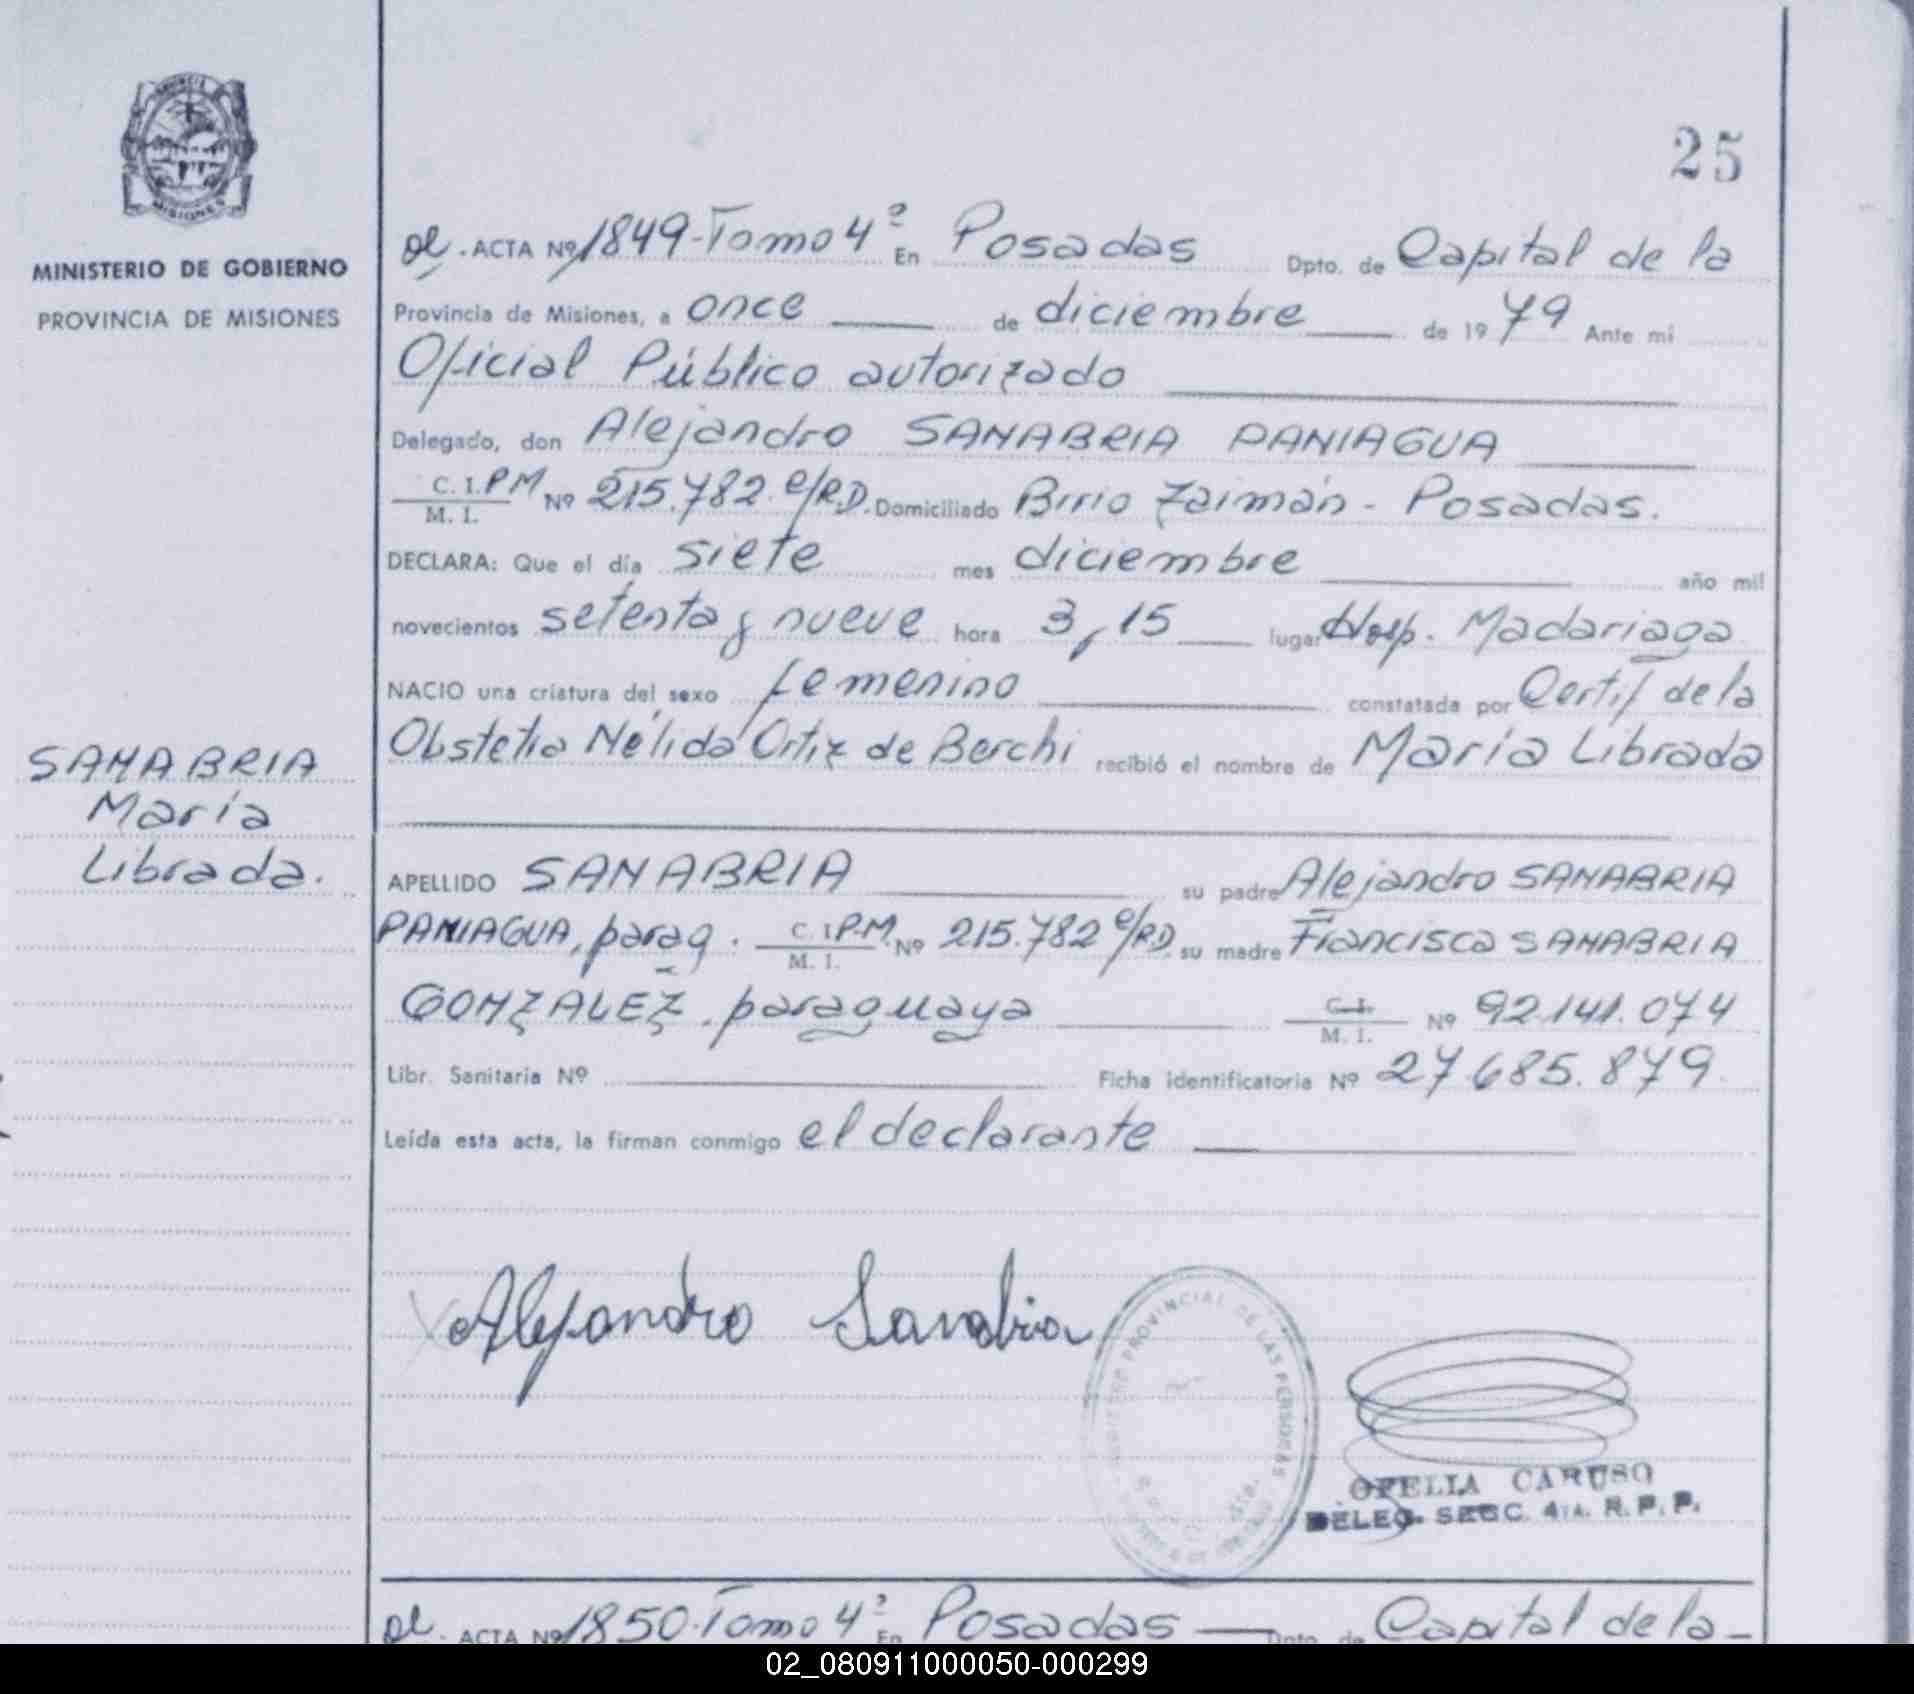 25
MINISTERIO DE GOBIERNO
PROVINCIA DE MISIONES
ACTA Nº 1849-Tomo 4º En Posadas Dpto. de Capital de la
Provincia de Misiones, a once de diciembre de 1979 Ante mi
Oficial Público autorizado
Delegado, don Alejandro SANABRIA PANIAGUA
C. I. P M Nº 215.782 c/R.D. Domiciliado Brrio Zaimán - Posadas.
M. I.
DECLARA: Que el día siete mes diciembre año mil
novecientos setenta y nueve hora 3,15 lugar Hosp. Madariaga
NACIO una criatura del sexo femenino constatada por Certif de la
Obstetra Nélida Ortiz de Berchi recibió el nombre de María Librada
SANABRIA
María
Librada.
APELLIDO SANABRIA su padre Alejandro SANABRIA
PANIAGUA, parag. C. I. P.M. Nº 215.782 c/R.D. su madre Francisca SANABRIA
M. I.
GONZALEZ, paraguaya C. I. Nº 92.141.074
M. I.
Libr. Sanitaria Nº Ficha identificatoria Nº 27.685.879
Leída esta acta, la firman conmigo el declarante
Alejandro Sanabria
PROVINCIAL DE LAS PERSONAS
OFELIA CARUSO
DELEG. SECC. 4TA. R. P. P.
ACTA Nº 1850-Tomo 4º En Posadas Dpto. de Capital de la
02_080911000050-000299